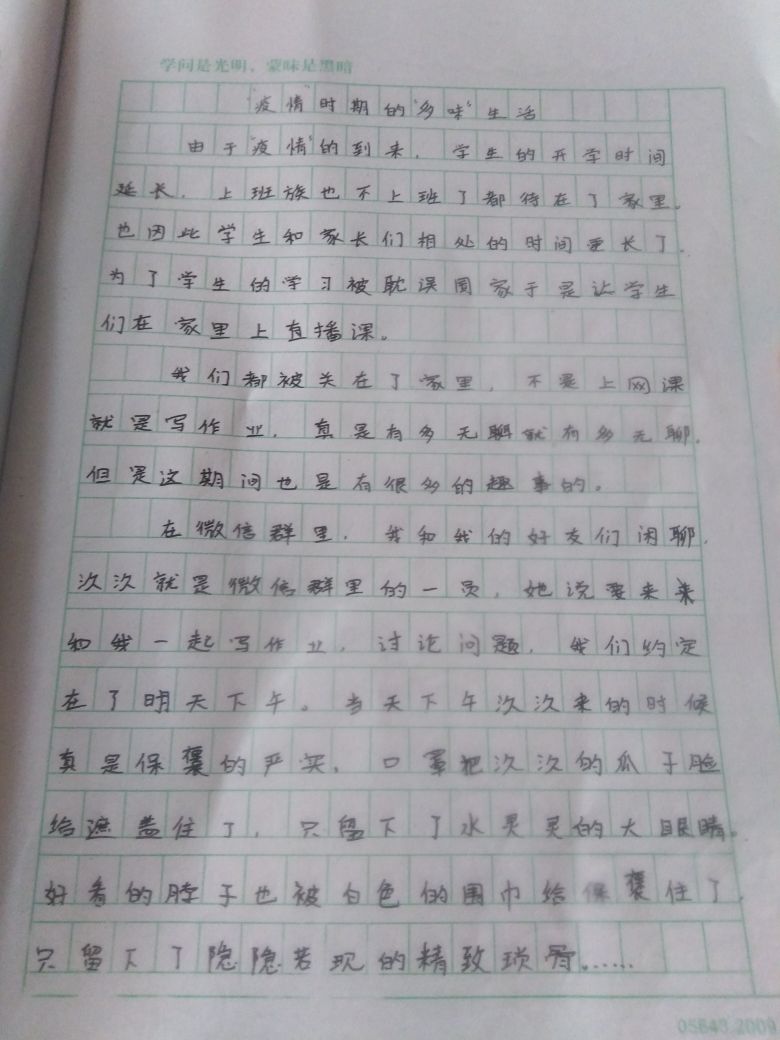 学问是光明，蒙昧是黑暗
"疫情"时期的"多味"生活
由于"疫情"的到来，学生的开学时间
延长，上班族也不上班了都待在了家里。
也因此学生和家长们相处的时间更长了，
为了学生的学习被耽误国家于是让学生
们在家里上直播课。
我们都被关在了家里，不是上网课
就是写作业，真是有多无聊就有多无聊，
但是这期间也是有很多的趣事的。
在微信群里，我和我的好友们闲聊，
次次就是微信群里的一员，她说要来来
和我一起写作业，讨论问题，我们约定
在了明天下午。当天下午次次来的时候
真是保裹的严实，口罩把次次的瓜子脸
给遮盖住了，只留下了水灵灵的大眼睛。
好看的脖子也被白色的围巾给保裹住了，
只留下了隐隐若现的精致琐骨……
05848.2009